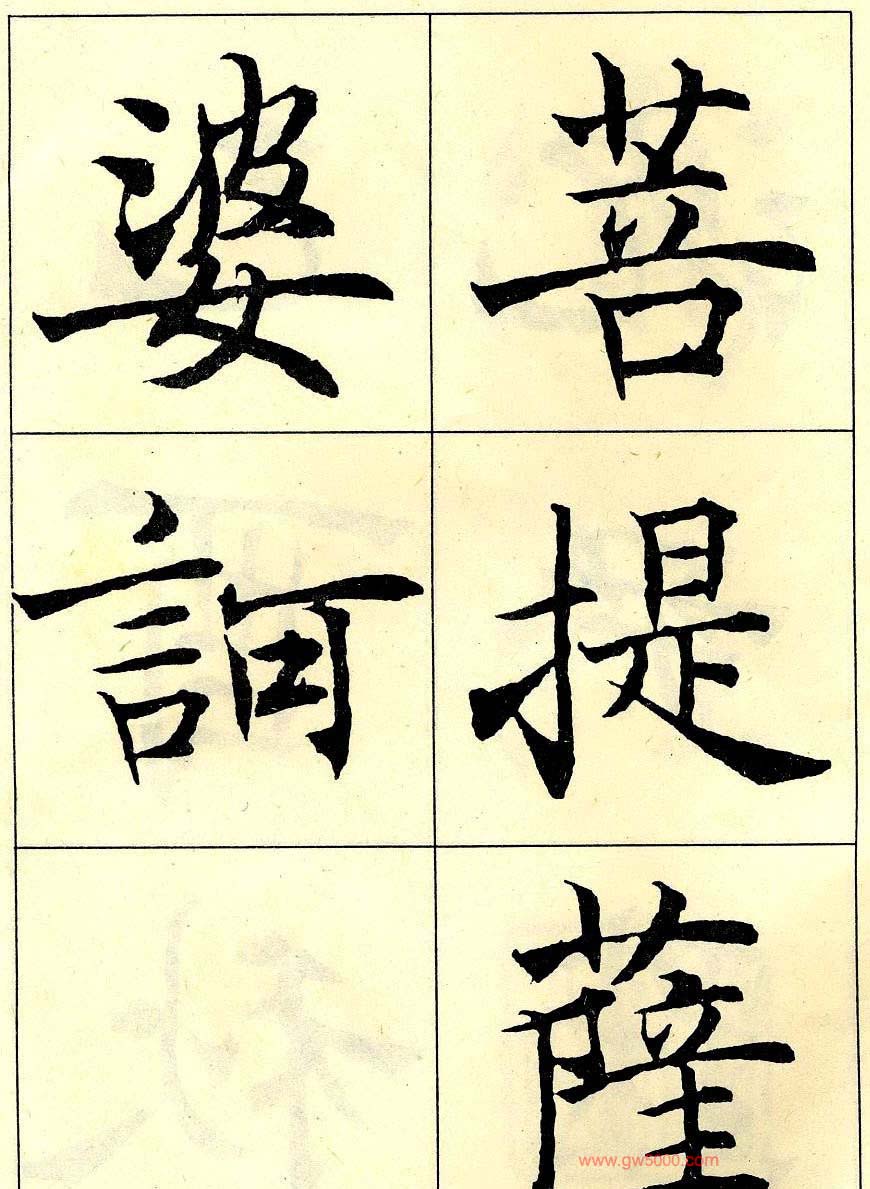 菩提薩
婆訶
www.gw5000.com